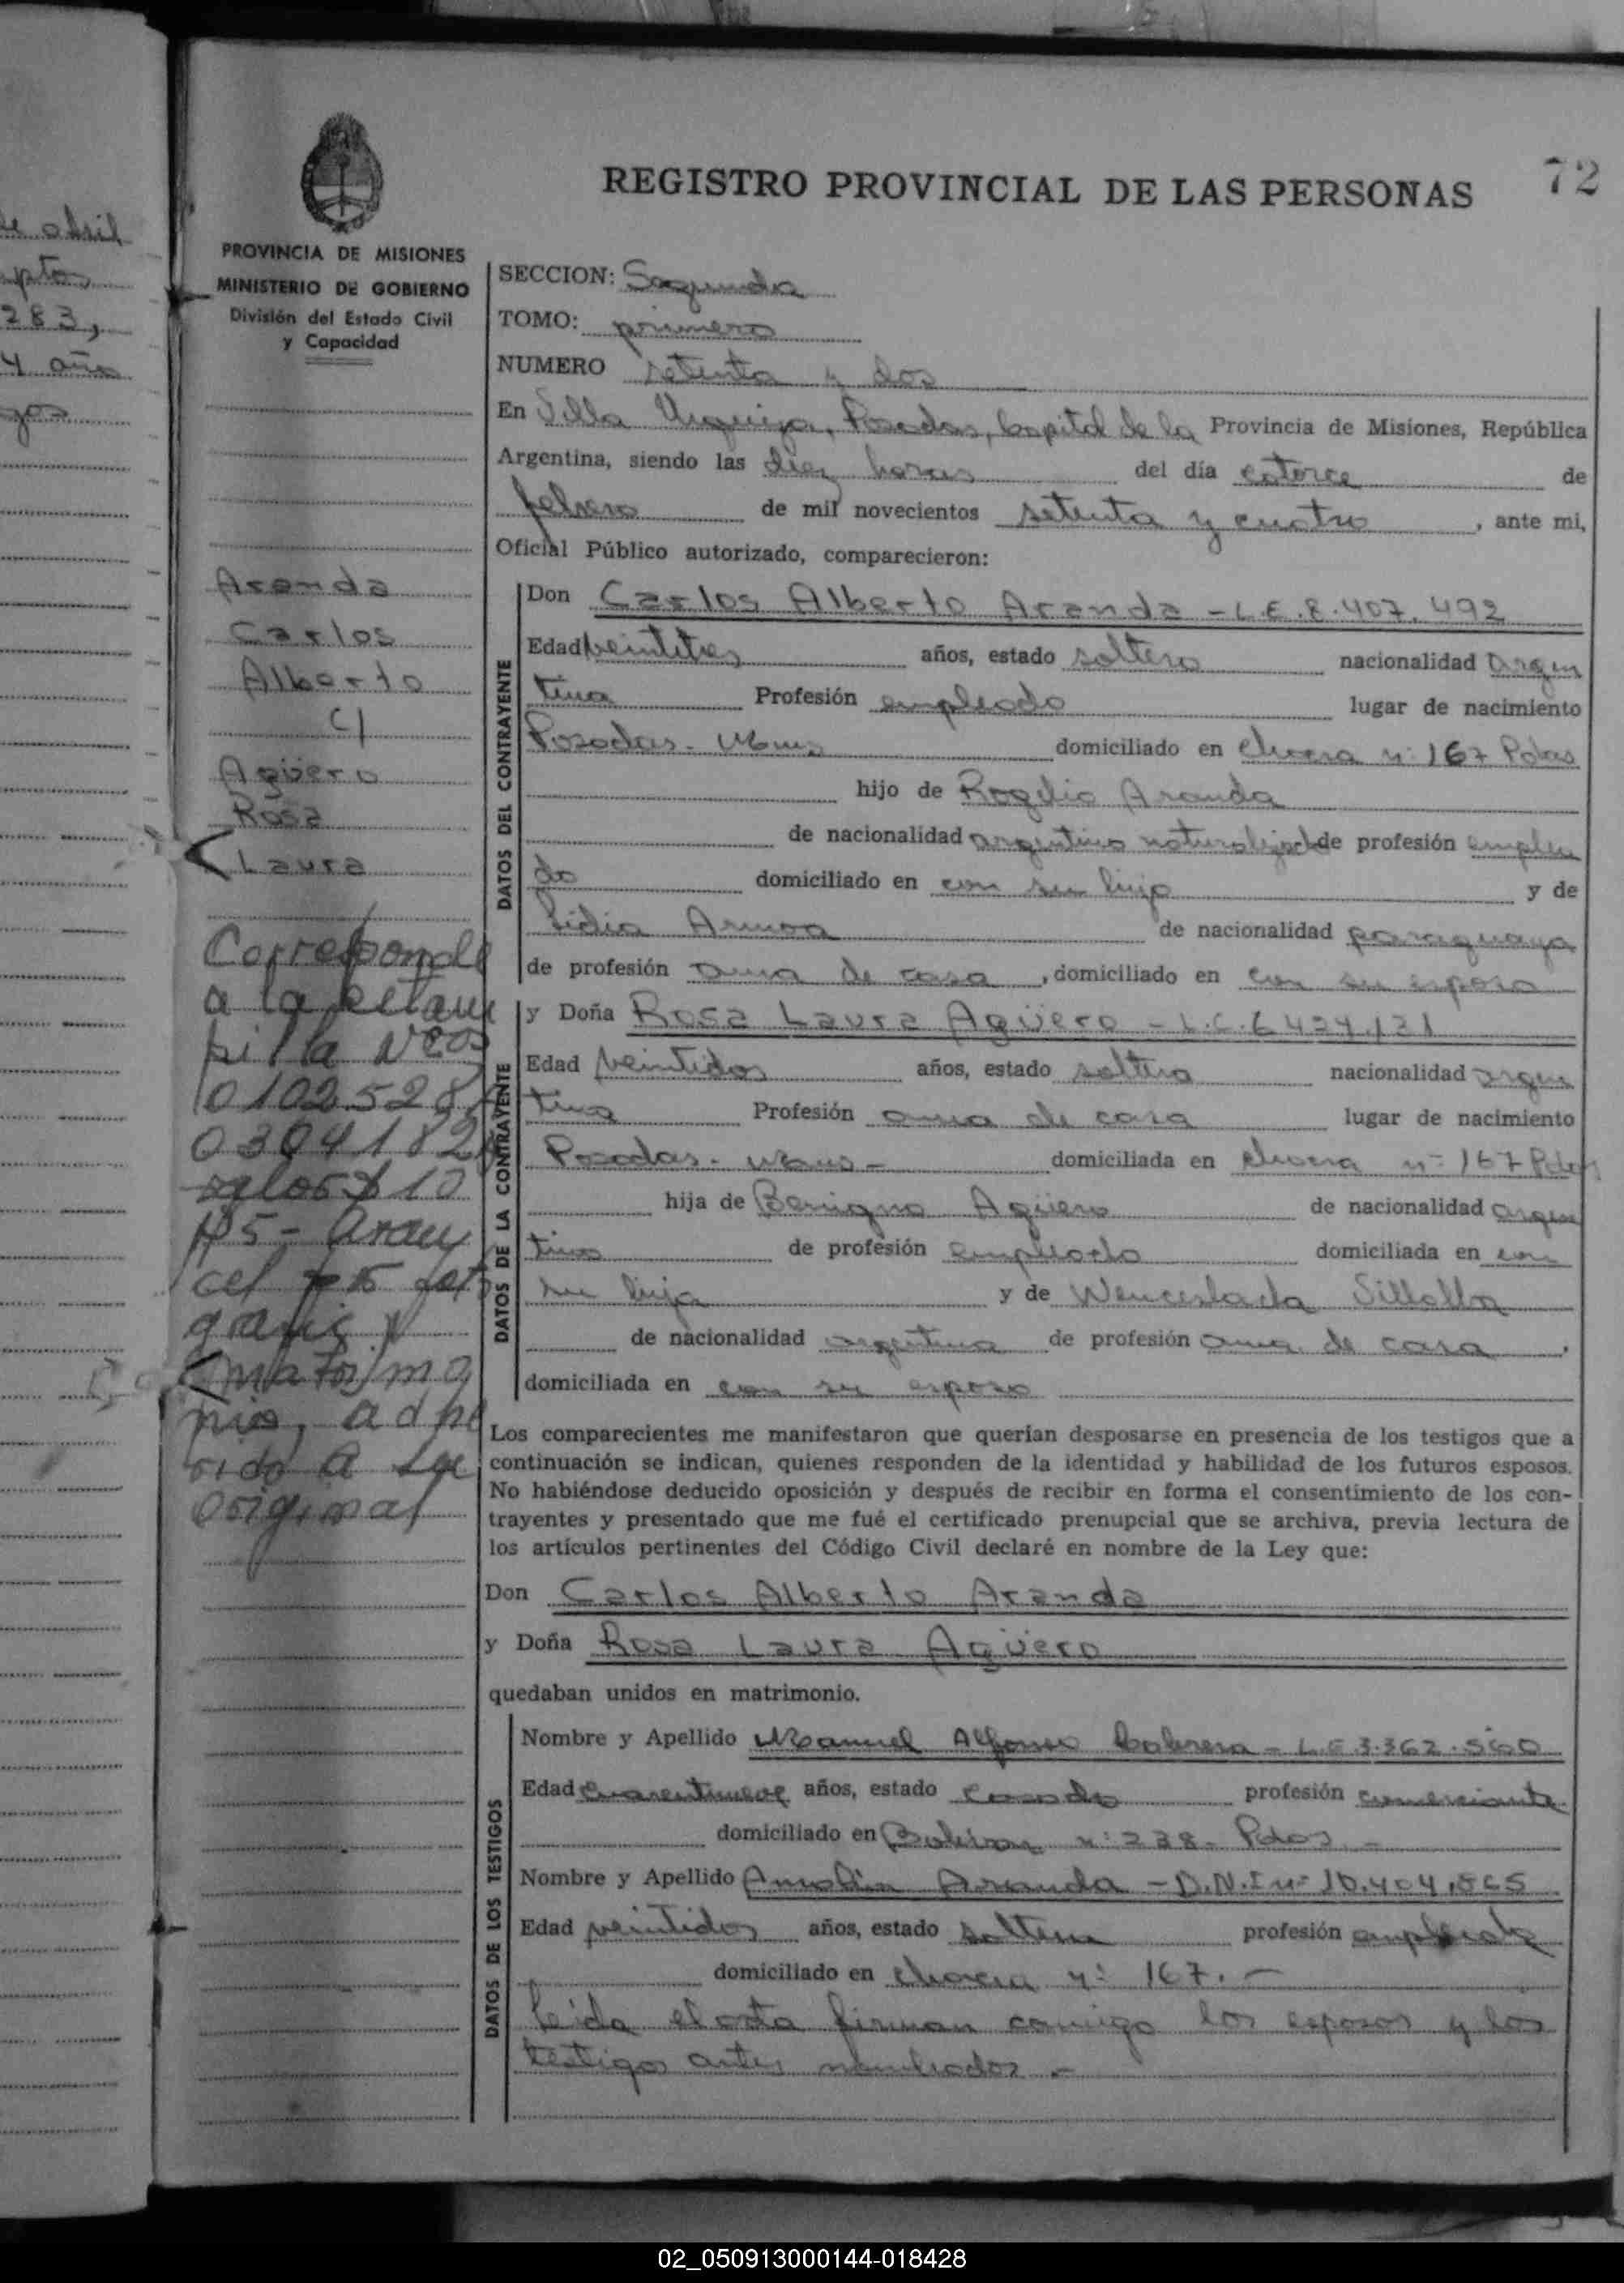 72
REGISTRO PROVINCIAL DE LAS PERSONAS
PROVINCIA DE MISIONES
MINISTERIO DE GOBIERNO
División del Estado Civil
y Capacidad
de abril
283,
4 años
Aranda
Carlos
Alberto
c/
Agüero
Rosa
Laura
Corresponde
a la estam
pilla Nros
01025283
$10
$5 - aran
cel
gratis y
matrimo
nio, adhe
rido a la
original
SECCION: Segunda
TOMO: primero
NUMERO setenta y dos
En Villa Urquiza, Posadas, Capital de la Provincia de Misiones, República
Argentina, siendo las diez horas del día catorce de
febrero de mil novecientos setenta y cuatro, ante mi,
Oficial Público autorizado, comparecieron:
DATOS DEL CONTRAYENTE
Don Carlos Alberto Aranda - L.E. 8.407.492
Edad veintitres años, estado soltero nacionalidad argen
tina Profesión empleado lugar de nacimiento
Posadas - Mnes domiciliado en nº 167 Pdas
hijo de Rogelio Aranda
de nacionalidad argentino naturalizado de profesión emplea
do domiciliado en con su hijo y de
Lidia Armoa de nacionalidad paraguaya
de profesión ama de casa, domiciliado en con su esposo
DATOS DE LA CONTRAYENTE
y Doña Rosa Laura Agüero - L.C. 6.424.121
Edad veintidos años, estado soltera nacionalidad argen
tina Profesión ama de casa lugar de nacimiento
Posadas - Mnes - domiciliada en nº 167 Pdas
hija de Benigno Agüero de nacionalidad argen
tino de profesión empleado domiciliada en con
su hija y de Wenceslada Villalba
de nacionalidad argentina de profesión ama de casa,
domiciliada en con su esposo
Los comparecientes me manifestaron que querían desposarse en presencia de los testigos que a
continuación se indican, quienes responden de la identidad y habilidad de los futuros esposos.
No habiéndose deducido oposición y después de recibir en forma el consentimiento de los con-
trayentes y presentado que me fué el certificado prenupcial que se archiva, previa lectura de
los artículos pertinentes del Código Civil declaré en nombre de la Ley que:
Don Carlos Alberto Aranda
y Doña Rosa Laura Agüero
quedaban unidos en matrimonio.
DATOS DE LOS TESTIGOS
Nombre y Apellido Manuel Alfonso Cabrera - L.E 3.362.560
Edad cuarentinueve años, estado casado profesión comerciante
domiciliado en Bolivar nº 238 - Pdas -
Nombre y Apellido Aranda - D.N.I nº 10.404.865
Edad veintidos años, estado soltera profesión empleada
domiciliado en nº 167. -
Leida el acta firman conmigo los esposos y los
testigos antes nombrados. -
02_050913000144-018428